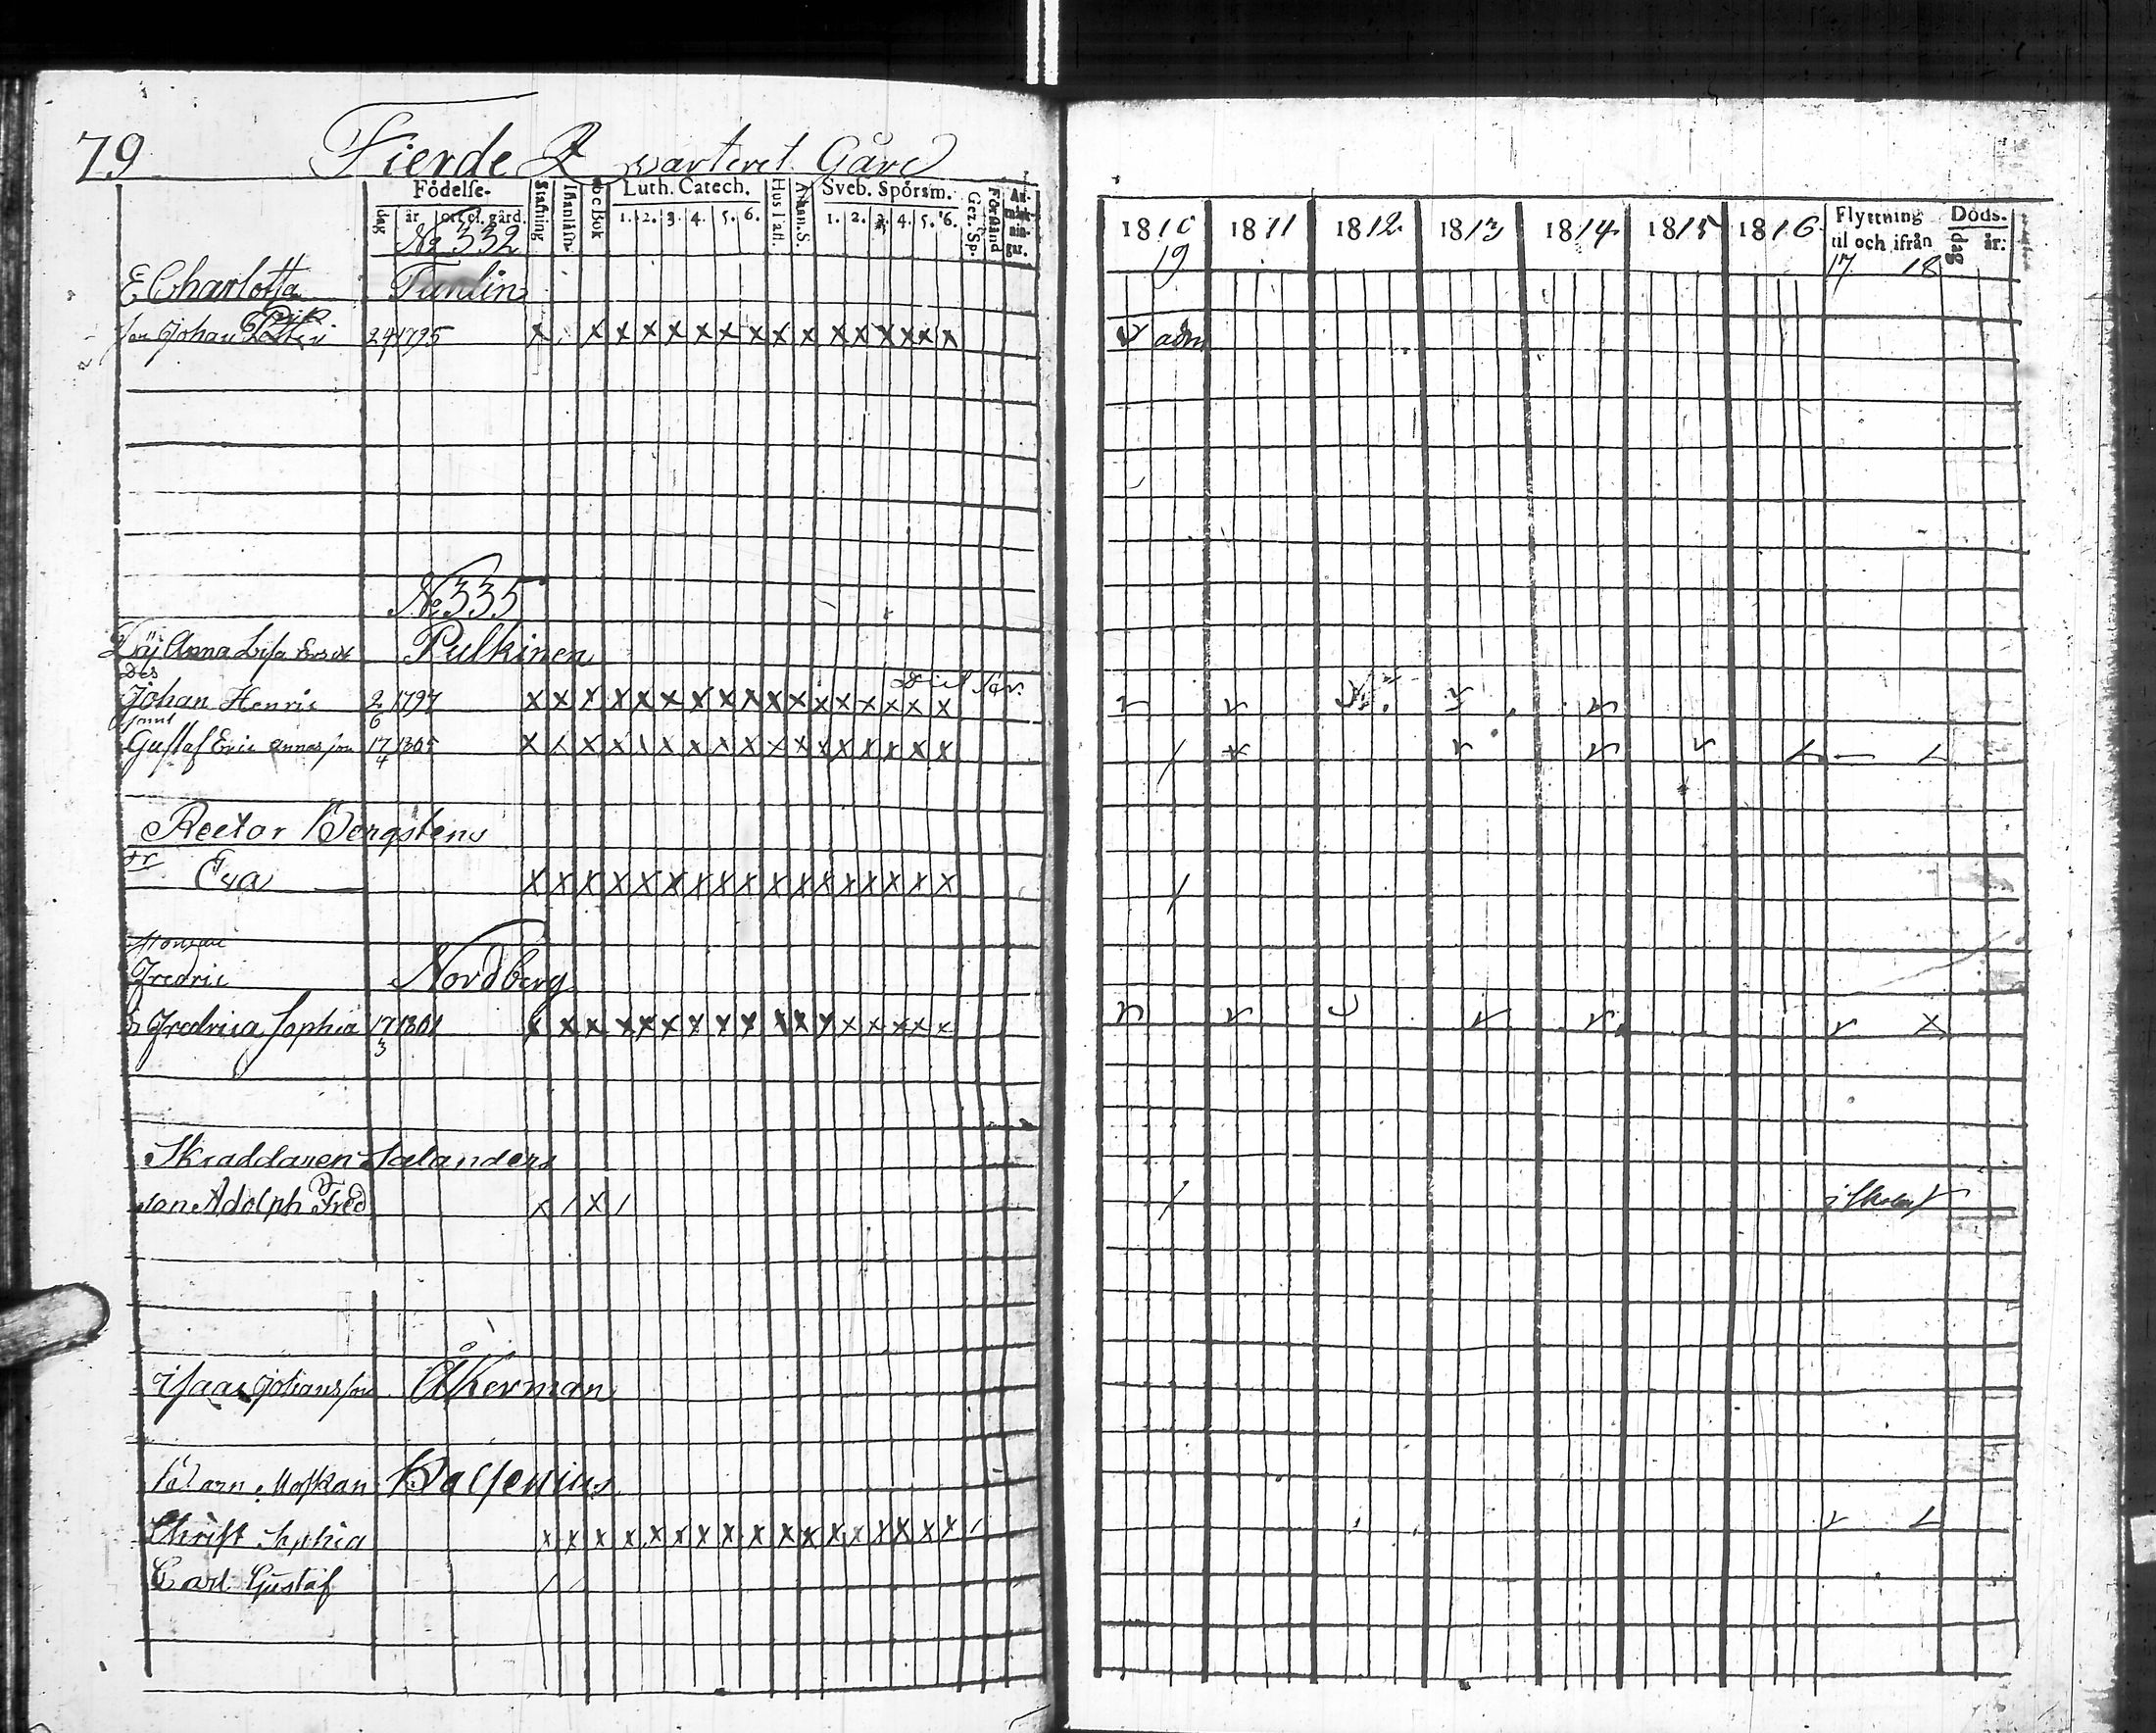 79 Fierde Qwarteret Gård
Födelse- Stafning Innanläsn. Abc Bok Luth. Catech. Hus Tafl. Athan. S. Sveb. Spörsm. Gez. Sp. Förstånd An-märk-nin-gar.
dag år ort el. gård. 1. 2. 3. 4. 5. 6. 1. 2. 3. 4. 5. 6.
1810 1811 1812 1813 1814 1815 1816 Flyttning til och ifrån Döds. dag år:
19 17 18
No 332
E Charlotta Tunlin
son Johan 24 1795 x x x x x x x x x x x x x x x x adm
No 335
Anna Lisa Pulkinen
Des
Johan Henric 2/6 1797 x x x x x x x x x x x x x x x x x
Gustaf Eric annas son 17/4 1805 x x x x x x x x x x x x x x x x x
Rector Bergstens
Eva x x x x x x x x x x x x x x x x x
Fredric Nordberg
Fredrica Sophia 17/3 1801 x x x x x x x x x x x x x x x x x
Skraddaren Salanders
son Adolph Fred x / x /
Isaac Johansson Åkerman
Christ Sophia x x x x x x x x x x x x x x x x x /
Carl Gustaf / /